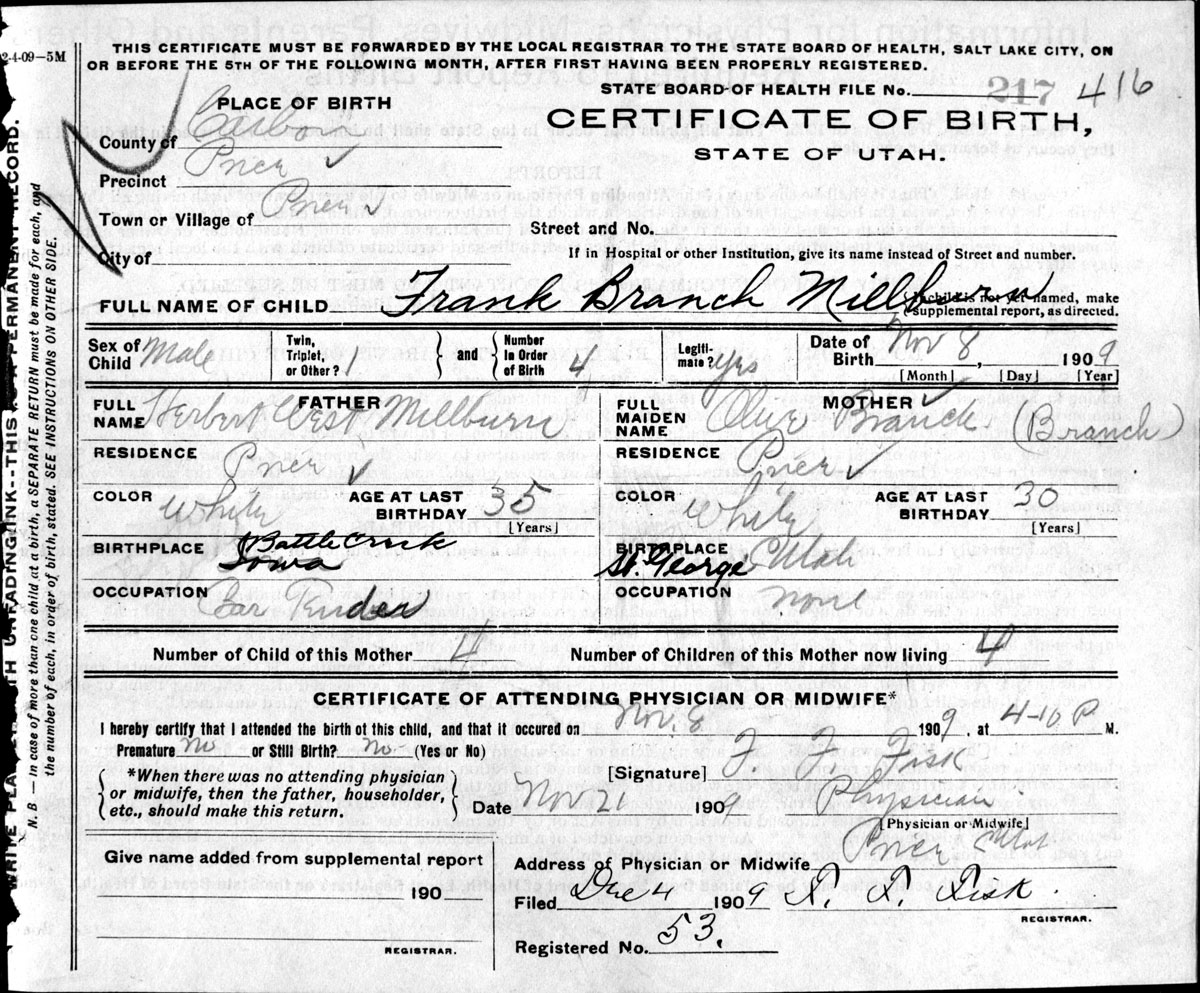 2-4-09—5M
THIS CERTIFICATE MUST BE FORWARDED BY THE LOCAL REGISTRAR TO THE STATE BOARD OF HEALTH, SALT LAKE CITY, ON
OR BEFORE THE 5TH OF THE FOLLOWING MONTH, AFTER FIRST HAVING BEEN PROPERLY REGISTERED.
STATE BOARD OF HEALTH FILE No. 217 416
PLACE OF BIRTH
CERTIFICATE OF BIRTH,
STATE OF UTAH.
County of Carbon
Precinct Price
Town or Village of Price
Street and No.
City of
If in Hospital or other Institution, give its name instead of Street and number.
FULL NAME OF CHILD Frank Branch Millburn
If child is not yet named, make
supplemental report, as directed.
Sex of Child Male
Twin, Triplet, or Other? 1
and
Number in Order of Birth 4
Legitimate? Yes
Date of Birth Nov 8, 1909
[Month] [Day] [Year]
FATHER
FULL NAME Herbert West Millburn
RESIDENCE Price
COLOR White
AGE AT LAST BIRTHDAY 35
[Years]
BIRTHPLACE Battle Creek
Iowa
OCCUPATION Car
MOTHER
FULL MAIDEN NAME Olive Branch (Branch)
RESIDENCE Price
COLOR White
AGE AT LAST BIRTHDAY 30
[Years]
BIRTHPLACE
St. George Utah
OCCUPATION None
Number of Child of this Mother 4
Number of Children of this Mother now living 4
CERTIFICATE OF ATTENDING PHYSICIAN OR MIDWIFE*
I hereby certify that I attended the birth of this child, and that it occured on Nov. 8 1909, at 4-10 P M.
Premature No or Still Birth? No (Yes or No)
[Signature] F. F. Fisk
*When there was no attending physician
or midwife, then the father, householder,
etc., should make this return.
Date Nov 21 1909 Physician
[Physician or Midwife]
Give name added from supplemental report
190
REGISTRAR.
Address of Physician or Midwife Price Utah
Filed Dec 4 1909 F. F. Fisk
REGISTRAR.
Registered No. 53.
WITH UNFADING INK--THIS IS A PERMANENT RECORD.
N. B. — In case of more than one child at birth, a SEPARATE RETURN must be made for each, and
the number of each, in order of birth, stated. SEE INSTRUCTIONS ON OTHER SIDE.